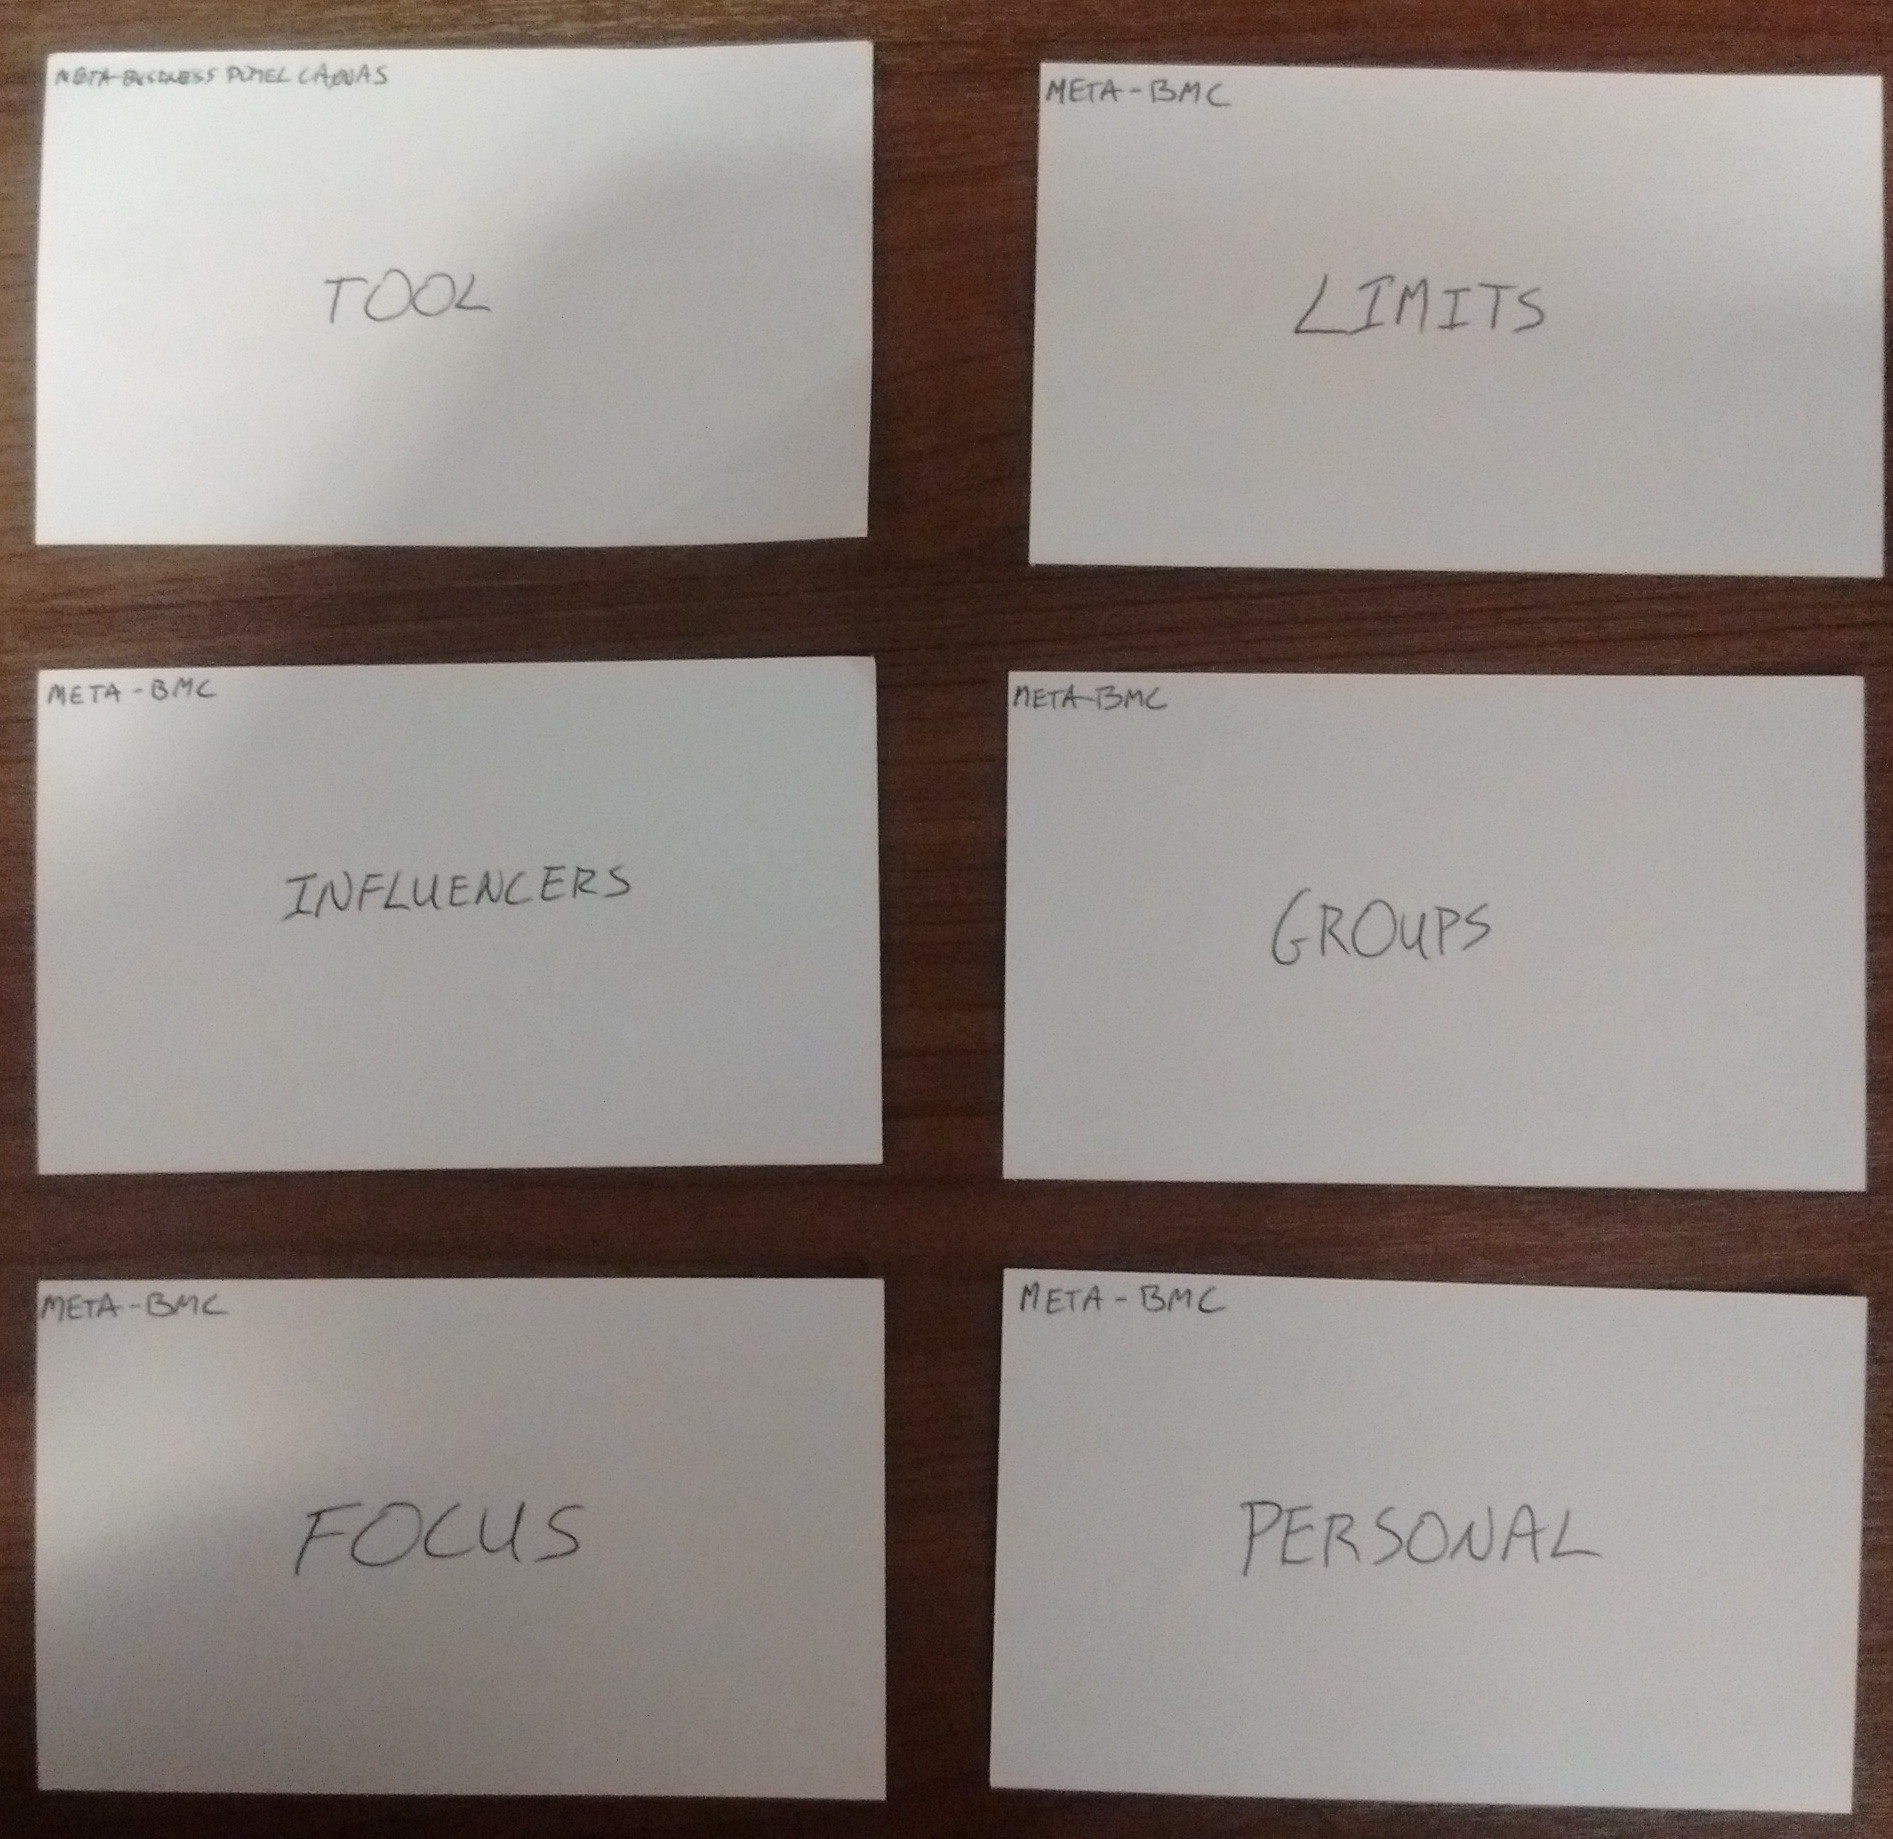 META-BUSINESS MODEL CANVAS
TOOL
META-BMC
LIMITS
META-BMC
INFLUENCERS
META-BMC
GROUPS
META-BMC
FOCUS
META-BMC
PERSONAL